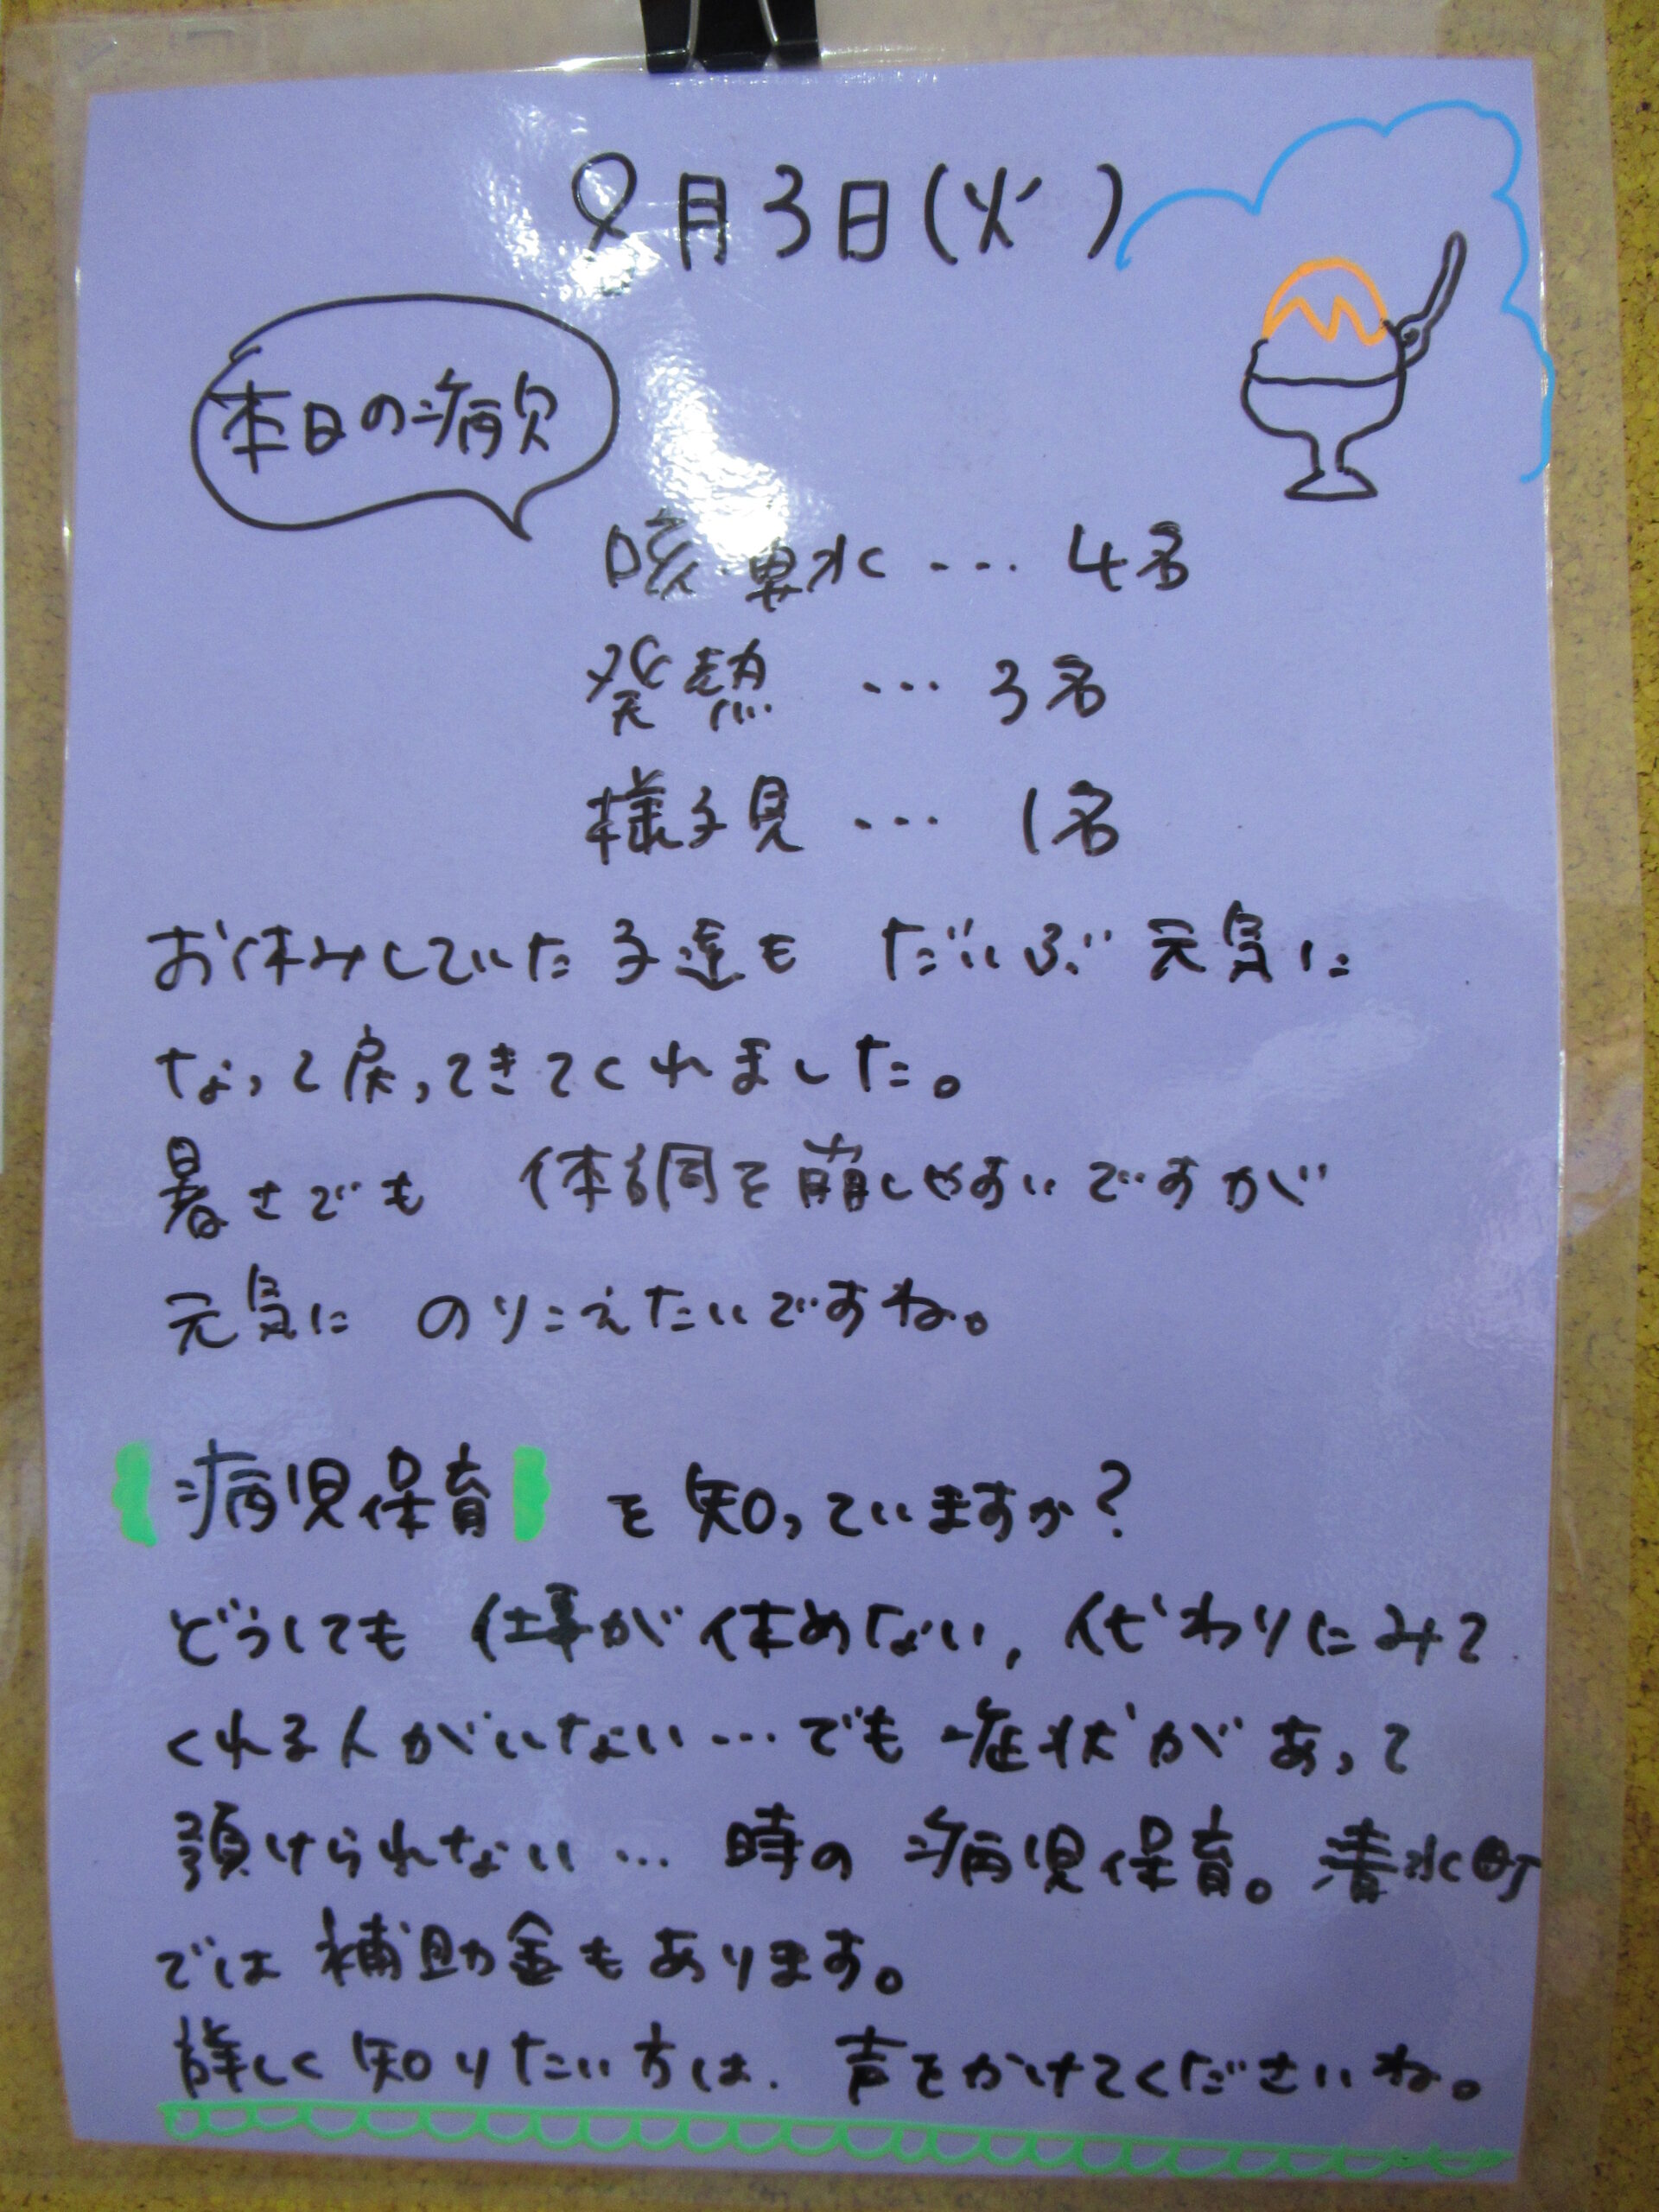 8月3日(火)
本日の病欠
咳・鼻水 ・・・ 4名
発熱 ・・・ 3名
様子見 ・・・ 1名
お休みしていた子達も だいぶ元気に
なって戻ってきてくれました。
暑さでも 体調を崩しやすいですが
元気に のりこえたいですね。
【病児保育】を知っていますか?
どうしても 仕事が休めない, 代わりにみて
くれる人がいない…でも症状があって
預けられない… 時の 病児保育。清水町
では 補助金もあります。
詳しく知りたい方は、声をかけてくださいね。